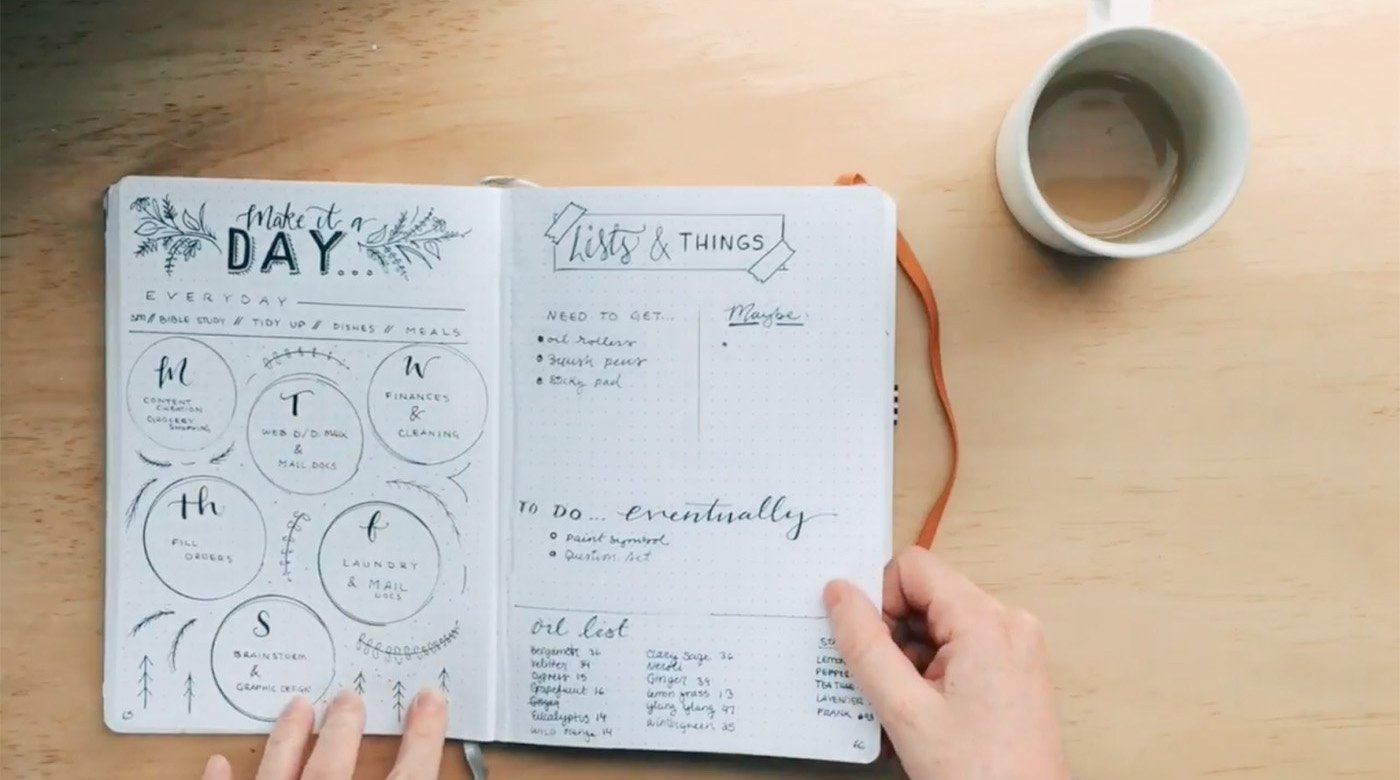 Make it a
DAY...
EVERYDAY
BIBLE STUDY // TIDY UP // DISHES // MEALS
M
CONTENT
CREATION
GROCERY
SHOPPING
T
WEB D/D
&
MAIL DOCS
W
FINANCES
&
CLEANING
Th
FILL
ORDERS
f
LAUNDRY
& MAIL
DOCS
S
BRAINSTORM
&
GRAPHIC DESIGN
65
Lists & THINGS
NEED TO GET...
oil rollers
Brush pens
Sticky pad
Maybe:
TO DO... eventually
paint symbol
Question set
oil list
Bergamot 36
Vetiver 34
Cypress 15
Grapefruit 16
Ginger
Eucalyptus 14
Wild Orange 14
Clary Sage 36
Neroli
Ginger 39
Lemon grass 13
Ylang Ylang 47
Wintergreen 35
LEMON
PEPPER
TEA TREE
LAVENDER
FRANK
66